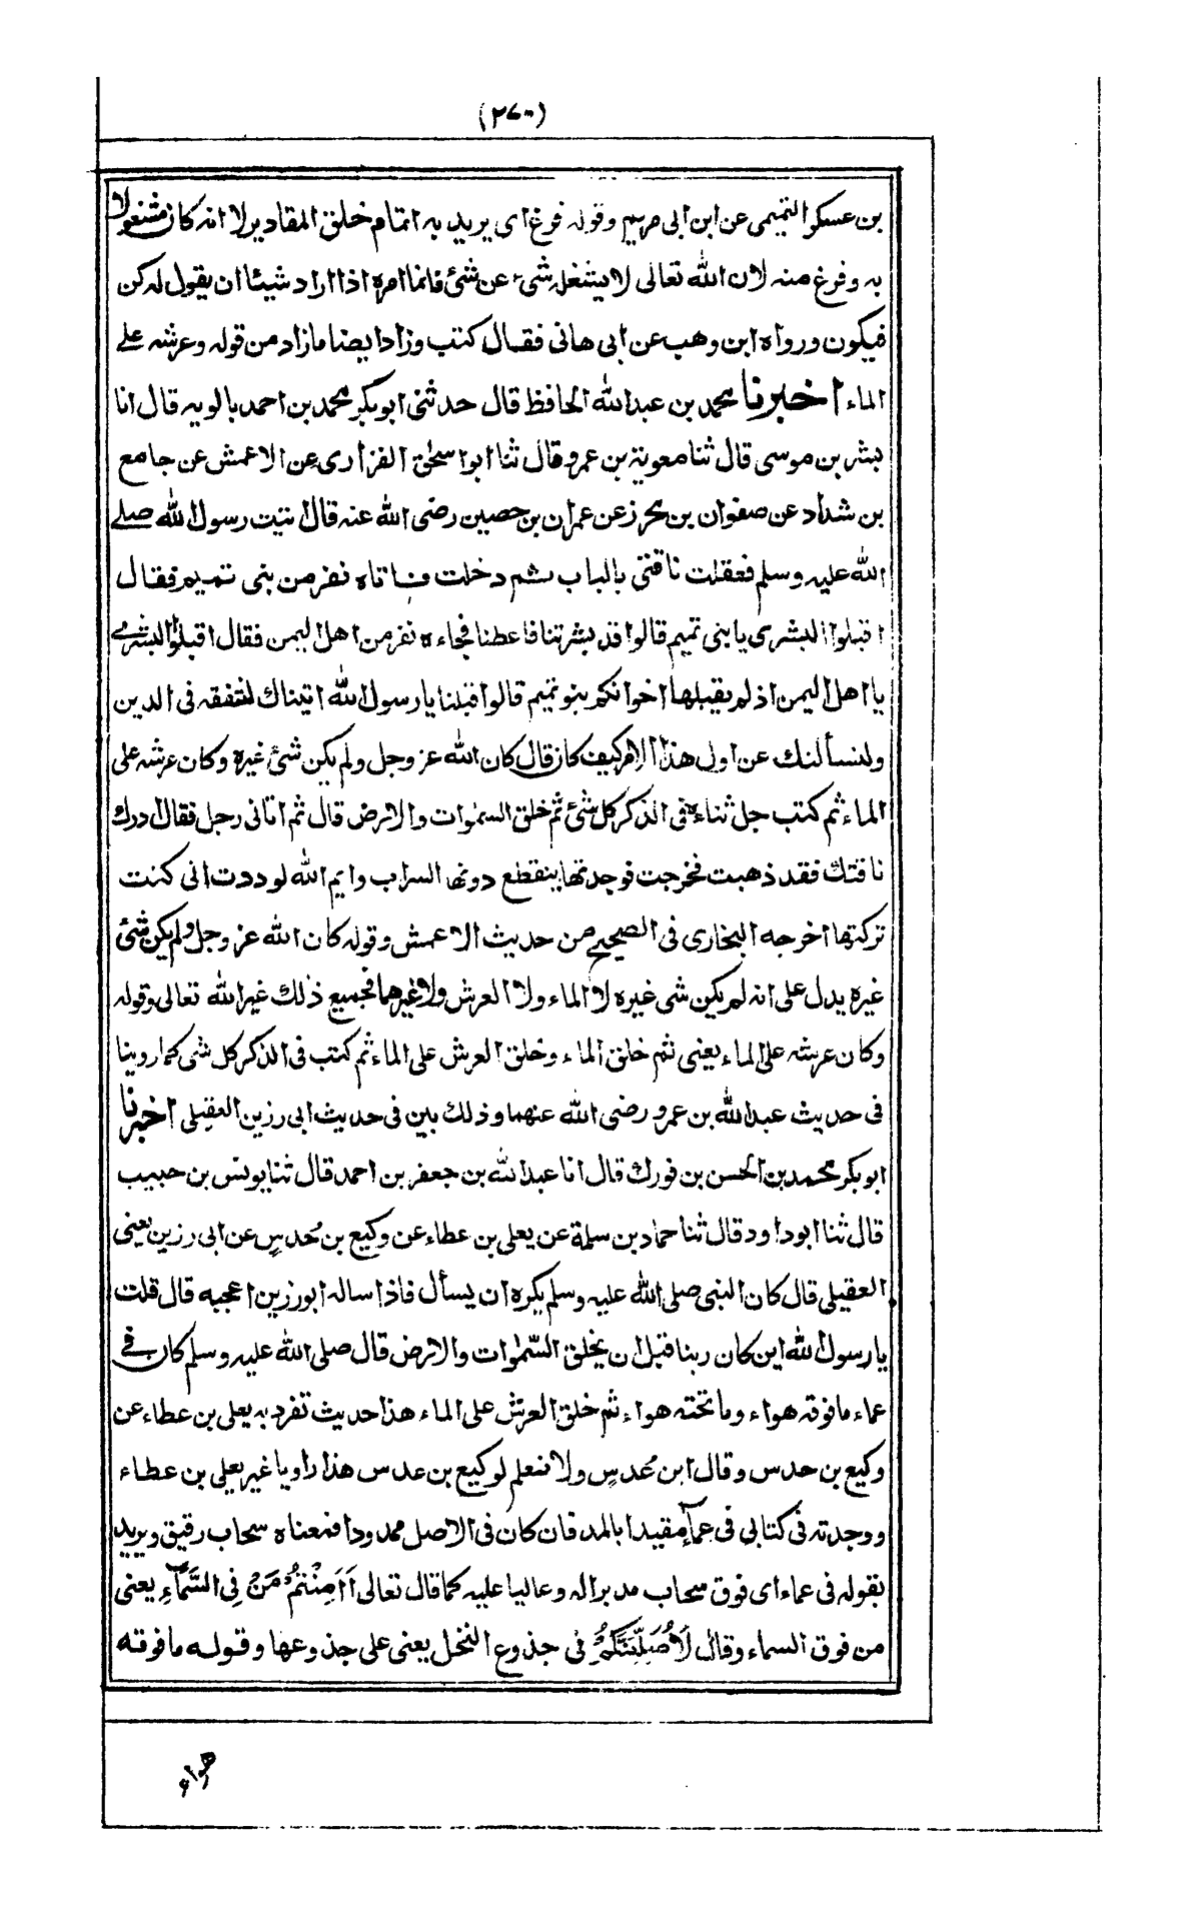 (٢٧٠)
بن عسكر التميمى عن ابن ابى مريم وقوله فرغ اى يريد به اتمام خلق المقادير لا انه كان مشغولا
به وفرغ منه لان الله تعالى لا يشغله شىء عن شئ فانما امره اذا اراد شيئا ان يقول له كن
فيكون ورواه ابن وهب عن ابى هانى فقال كتب وزاد ايضا مازاد من قوله وعرشه على
الماء اخبرنا محمد بن عبد الله الحافظ قال حدثنى ابو بكر محمد بن احمد بالويه قال انا
بشر بن موسى قال ثنا معوية بن عمرو قال ثنا ابو اسحٰق الفزارى عن الاعمش عن جامع
بن شداد عن صفوان بن محرز عن عمران بن حصين رضى الله عنه قال اتيت رسول الله صلى
الله عليه وسلم فعقلت ناقتى بالباب ثم دخلت فاتاه نفر من بنى تميم فقال
اقبلوا البشرى يا بنى تميم قالوا قد بشرتنا فاعطنا فجاءه نفر من اهل اليمن فقال اقبلوا البشرى
يا اهل اليمن اذ لم يقبلها اخوانكم بنو تميم قالوا قبلنا يا رسول الله اتيناك لنتفقه فى الدين
ولنسألنك عن اول هذا الامر كيف كان قال كان الله عز وجل ولم يكن شئ غيره وكان عرشه على
الماء ثم كتب جل ثناءه فى الذكر كل شئ ثم خلق السمٰوات والارض قال ثم اتانى رجل فقال ادرك
ناقتك فقد ذهبت فخرجت فوجدتها ينقطع دونها السراب وايم الله لوددت انى كنت
تركتها اخرجه البخارى فى الصحيح من حديث الاعمش وقوله كان الله عز وجل ولم يكن شئ
غيره يدل على انه لم يكن شى غيره لا الماء ولا العرش ولا غيرهما فجميع ذلك غير الله تعالى وقوله
وكان عرشه على الماء يعنى ثم خلق الماء وخلق العرش على الماء ثم كتب فى الذكر كل شى كما روينا
فى حديث عبد الله بن عمرو رضى الله عنهما وذلك بين فى حديث ابى رزين العقيلى اخبرنا
ابو بكر محمد بن الحسن بن فورك قال انا عبد الله بن جعفر بن احمد قال ثنا يونس بن حبيب
قال ثنا ابو داود قال ثنا حماد بن سلمة عن يعلى بن عطاء عن وكيع بن حُدسٍ عن ابى رزين يعنى
العقيلى قال كان النبى صلى الله عليه وسلم يكره ان يسأل فاذا ساله ابو رزين اعجبه قال قلت
يا رسول الله اين كان ربنا قبل ان يخلق السّمٰوات والارض قال صلى الله عليه وسلم كان فى
عماء مافوقه هواء وما تحته هواء ثم خلق العرش على الماء هذا حديث تفرد به يعلى بن عطاء عن
وكيع بن حدس وقال ابن عُدسٍ ولا نعلم لوكيع بن عدس هذا راويا غير يعلى بن عطاء
ووجدته فى كتابى فى عمآءٍ مقيدا بالمد فان كان فى الاصل ممدودا فمعناه سحاب رقيق ويريد
بقوله فى عماء اى فوق سحاب مدبرا له وعاليا عليه كما قال تعالى اَاَمِنْتُمْ مَنْ فِى السَّمَآءِ يعنى
من فوق السماء وقال لَاُصَلِّبَنَّكُمْ فى جذوع النخل يعنى على جذوعها وقوله مافوقه
هواء